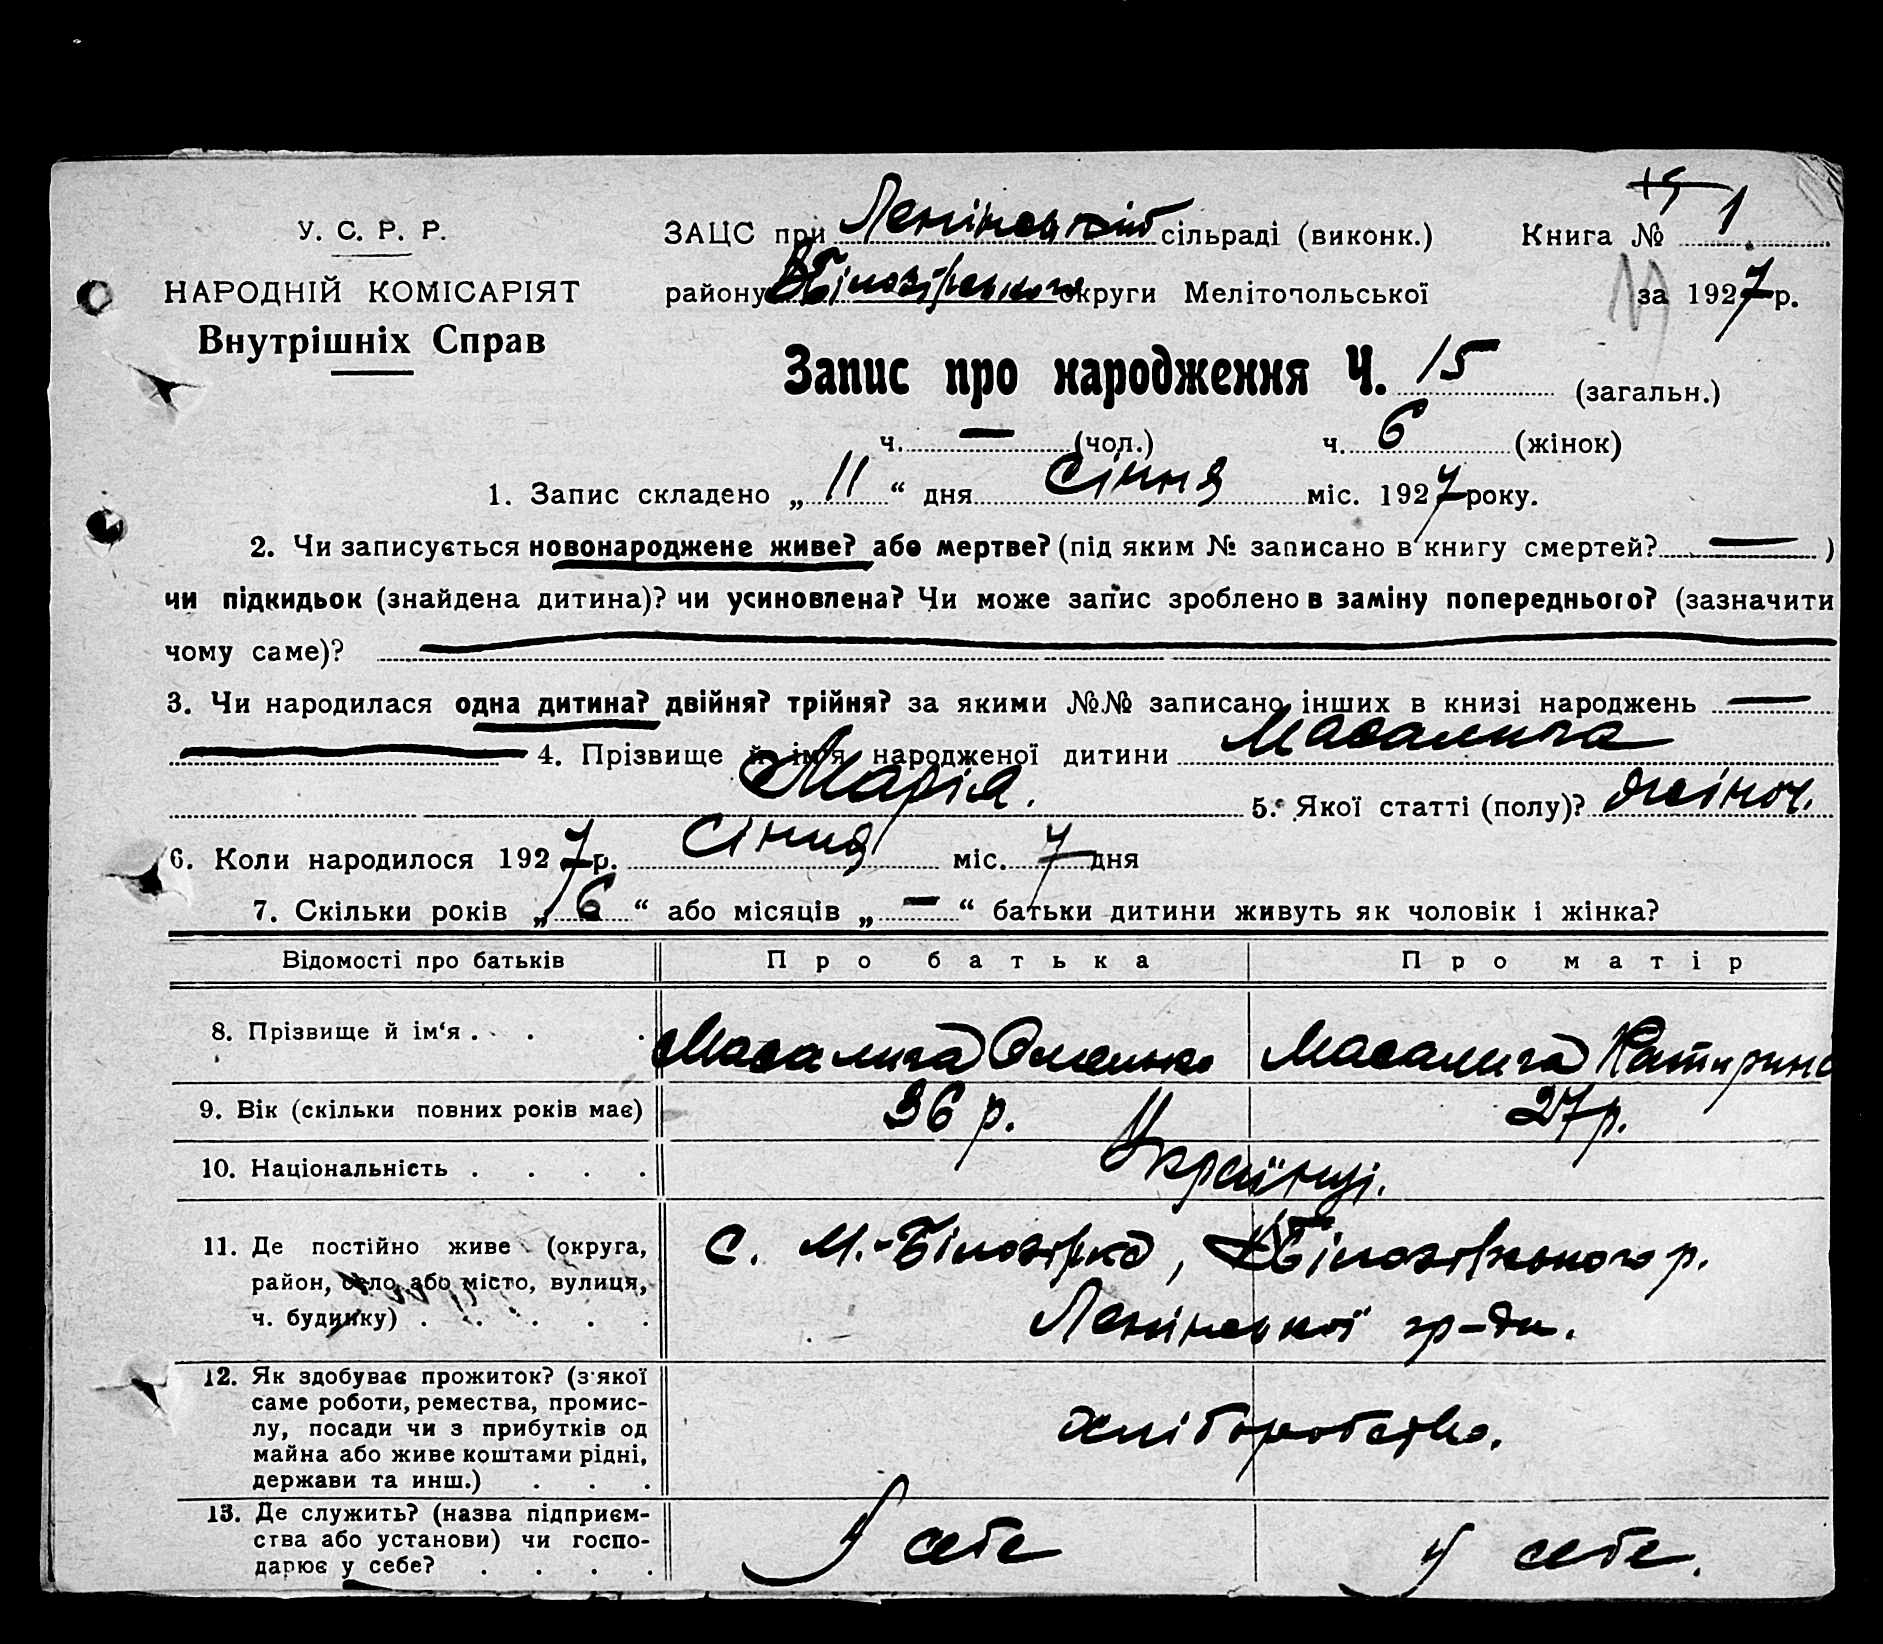 У. С. Р. Р.
НАРОДНІЙ КОМІСАРІЯТ
Внутрішніх Справ
ЗАЦС при Ленінській сільраді (виконк.)
Книга № 1
району В Білозірського округи Мелітопольської
за 1927 р.
Запис про народження Ч. 15 (загальн.)
ч. — (чол.) ч. 6 (жінок)
1. Запис складено „ 11 “ дня Січня міс. 1927 року.
2. Чи записується новонароджене живе? або мертве? (під яким № записано в книгу смертей? — )
чи підкидьок (знайдена дитина)? чи усиновлена? Чи може запис зроблено в заміну попереднього? (зазначити
чому саме)? —
3. Чи народилася одна дитина? двійня? трійня? за якими №№ записано інших в книзі народжень —
— 4. Прізвище й ім'я народженої дитини Масалига
Марія. 5. Якої статті (полу)? жіноч.
6. Коли народилося 1927 р. Січня міс. 7 дня
7. Скільки років „ 6 “ або місяців „ — “ батьки дитини живуть як чоловік і жінка?
Відомості про батьків Про батька Про матір
8. Прізвище й ім‘я . . . Масалига Масалига Катирина
9. Вік (скільки повних років має) 36 р. 27 р.
10. Національність . . . . Українці.
11. Де постійно живе (округа, с. М.-Білозірка, В Білозірського р.
район, село або місто, вулиця,
ч. будинку) . . . . . Ленінської гр-ди.
12. Як здобуває прожиток? (з'якої
саме роботи, ремества, промис-
лу, посади чи з прибутків од хліборобство.
майна або живе коштами рідні,
держави та инш.) . . .
13. Де служить? (назва підприєм-
ства або установи) чи госпо- у себе у себе.
дарює у себе? . . . .